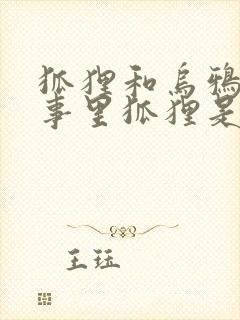 狐狸和乌鸦
事里狐狸是
王珏